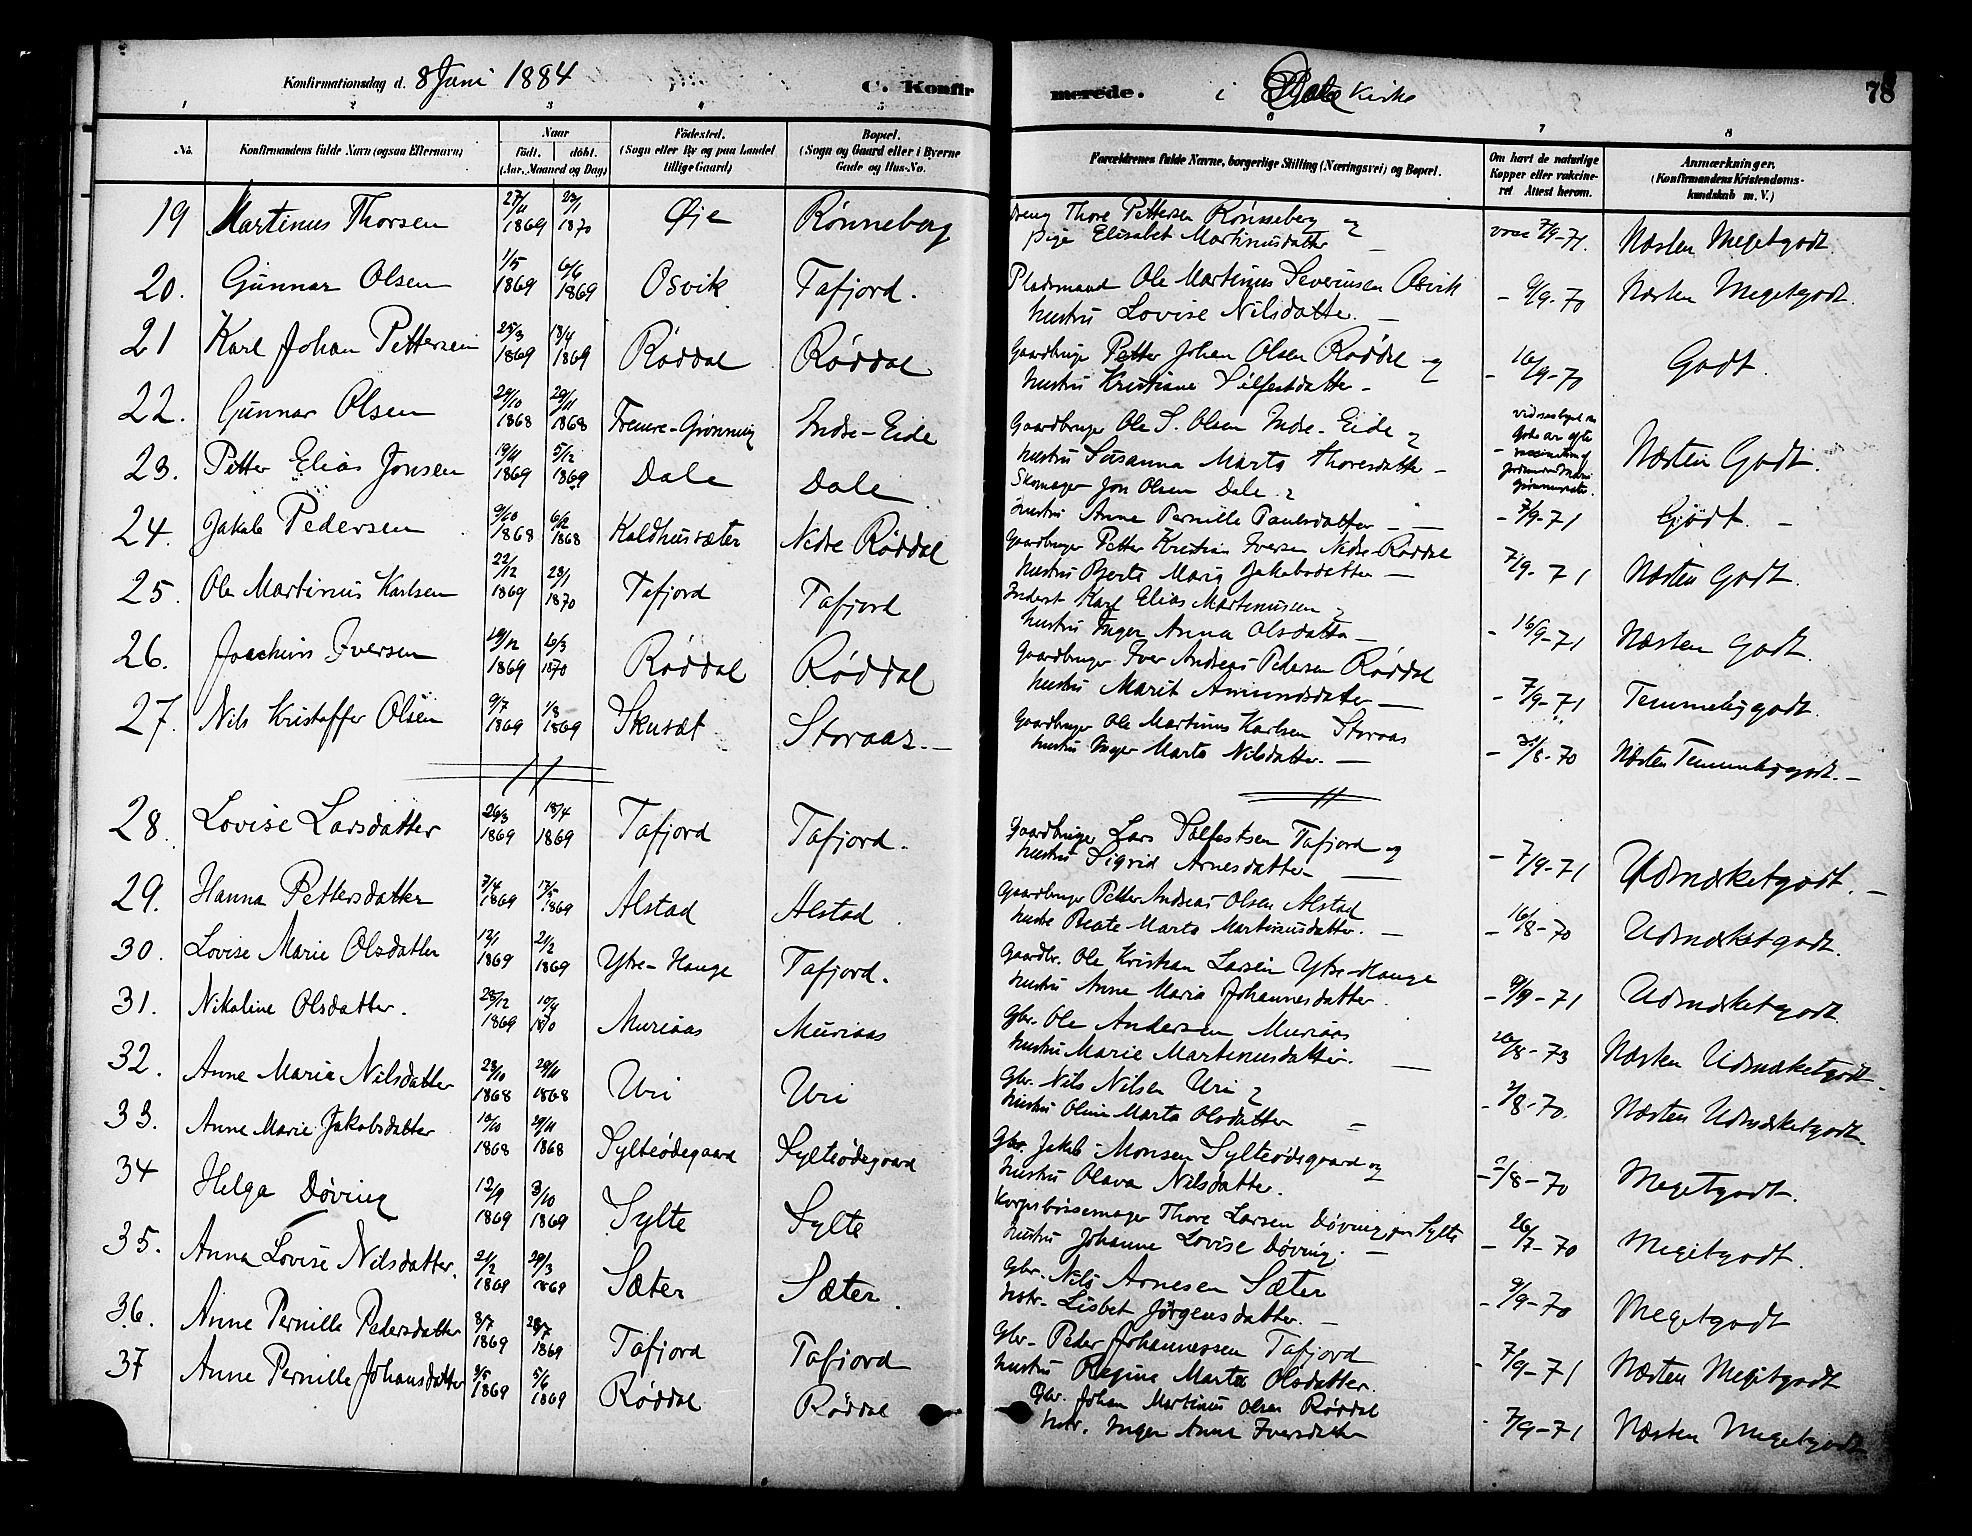 Konfirmationsdag d. 8 Juni 1884
C. Konfirmerede. i Dale Kirke
78
1 2 3 4 5 6 7 8
No.
Konfirmandens fulde Navn (ogsaa Efternavn)
Naar
født. døbt.
(Aar, Maaned og Dag)
Fødested.
(Sogn eller By og paa Landet
tillige Gaard)
Bopæl.
(Sogn og Gaard eller i Byerne
Gade og Hus-No.
Forældrenes fulde Navne, borgerlige Stilling (Næringsvei) og Bopæl.
Om havt de naturlige
Kopper eller vaksine-
ret Attest herom.
Anmærkninger.
(Konfirmandens Kristendoms-
kundskab m. V.)
19 Martinus Thorsen 27/11 1869 23/1 1870 Øje Rønneberg
Dreng Thore Pettersen Rønneberg og
pige Elisabet Martinusdatter – vacc 7/9-71. Næsten Megetgodt.
20. Gunnar Olsen 1/5 1869 6/6 1869 Osvik Tafjord.
Pladsmand Ole Martinus Severinsen Osvik
hustru Lovise Nilsdatter. – – 9/9-70 Næsten Megetgodt.
21 Karl Johan Pettersen 25/3 1869 18/4 1869 Røddal Røddal
Gaardbruger Petter Johan Olsen Røddal og
hustru Kristiane Silfestdatter – – 16/9-70 Godt.
22. Gunnar Olsen 29/10 1868 29/11 1868 Fremre-Grønning Indre-Eide
Gaardbruger Ole S. Olsen Indre-Eide og
hustru Susanna Marta Thoresdatter – Næsten Godt.
23. Petter Elias Jonsen 19/11 1869 5/12 1869 Dale Dale
Skomager Jon Olsen Dale og
hustru Anne Pernille Paulsdatter – – – 7/9-71 Godt. –
24. Jakob Pedersen 9/10 1868 6/12 1868 Kaldhussæter Nedre Røddal
Gaardbruger Petter Kristian Iversen Nedre-Røddal
hustru Berte Maria Jakobsdatter – 7/9-71 Næsten Godt.
25. Ole Martinus Karlsen 22/12 1869 23/1 1870 Tafjord Tafjord
Inderst Karl Elias Martinussen og
hustru Inger Anna Olsdatter – – 16/9-71 Næsten Godt.
26. Joachim Iversen 19/12 1869 6/3 1870 Røddal Røddal
Gaardbruger Iver Andreas Pedersen Røddal
hustru Marit Amundsdatter – – 7/9-71 Temmeliggodt.
27. Nils Kristoffer Olsen 9/7 1869 1/8 1869 Skusæt Storaas. –
Gaardbruger Ole Martinus Karlsen Storaas
hustru Inger Marta Nilsdatter. – – 31/8-70 Næsten Temmeliggodt. –
28. Lovise Larsdatter 26/3 1869 18/4 1869 Tafjord Tafjord.
Gaardbruger Lars Silfestsen Tafjord og
hustru Sigrid Arnesdatter – – 7/9-71 Udmærketgodt. –
29. Hanna Pettersdatter 7/4 1869 17/5 1869 Alstad Alstad.
Gaardbruger Petter Andreas Olsen Alstad
hustru Beate Marta Martinusdatter. – – 16/8-70 Udmærketgodt.
30. Lovise Marie Olsdatter 13/1 1869 21/2 1869 Ytre-Hauge Tafjord.
Gaardbr. Ole Kristian Larsen Ytre-Hauge
hustru Anne Maria Johannesdatter. – 9/9-71 Udmærketgodt.
31. Nikoline Olsdatter. 28/12 1869 10/4 1870 Muriaas Muriaas
Gbr. Ole Andersen Muriaas
hustru Marie Martinusdatter. – 26/8-73 Næsten Udmærketgodt.
32. Anne Maria Nilsdatter 23/10 1868 29/11 1868 Uri Uri
Gbr. Nils Nilsen Uri og
hustru Oline Marta Olsdatter – – 2/8-70. Næsten Udmærketgodt.
33. Anne Marie Jakobsdatter 10/10 1868 29/11 1868 Sylteødegaard Sylteødegaard
Gbr. Jakob Monsen Sylteødegaard og
hustru Olava Nilsdatter. – 2/8-70 Megetgodt.
34 Helga Døving 12/9 1869 3/10 1869 Sylte Sylte
Korpsbøssemager Thore Larsen Døving paa Sylte
hustru Johanne Lovise Døving. – – 26/7-70 Megetgodt.
35. Anna Lovise Nilsdatter. 2/2 1869 29/3 1869 Sæter Sæter.
Gbr. Nils Arnesen Sæter
hstr. Lisbet Jørgensdatter. – – 9/9-70 Megetgodt
36. Anne Pernille Pedersdatter 8/7 1869 28/7 1869 Tafjord Tafjord
Gbr. Peder Johannessen Tafjord
hustru Regine Marta Olsdatter. – 7/9-71 Næsten Megetgodt
37 Anne Pernille Johansdatter 9/5 1869 5/6 1869 Røddal Røddal
Gbr. Johan Martinus Olsen Røddal
hstr. Inger Anna Iversdatter – 7/9-71 Næsten Megetgodt